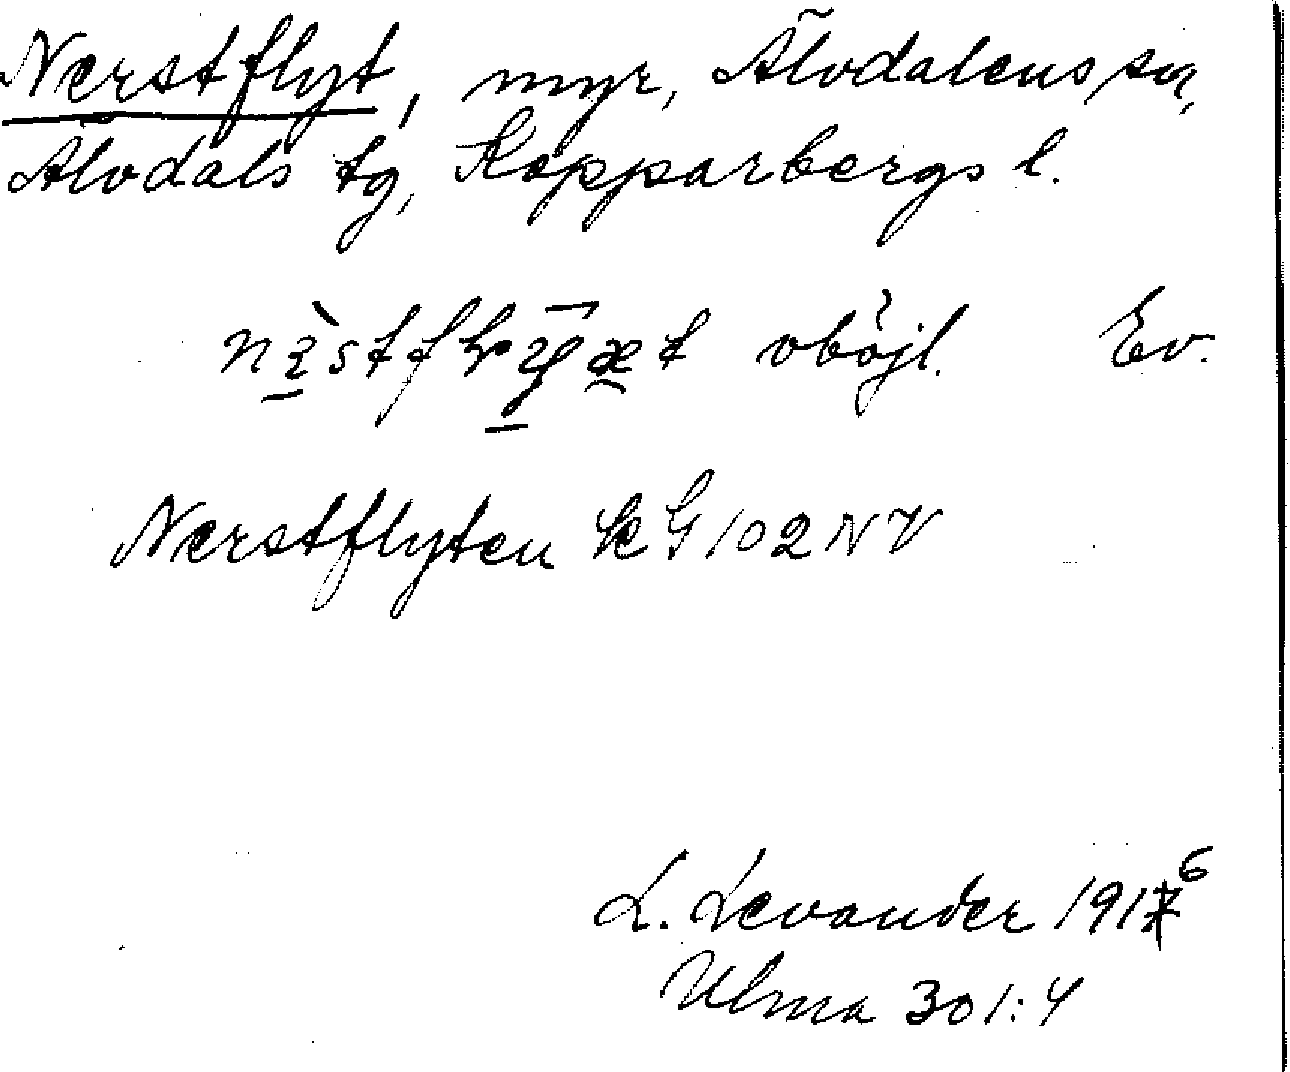 Nerstflyt, myr, Älvdalens sn,
Älvdals tg, Kopparbergs l.
oböjl. Ev.
Nerstflyten k G 102 NV
L. Levander 1916
Ulma 301:4